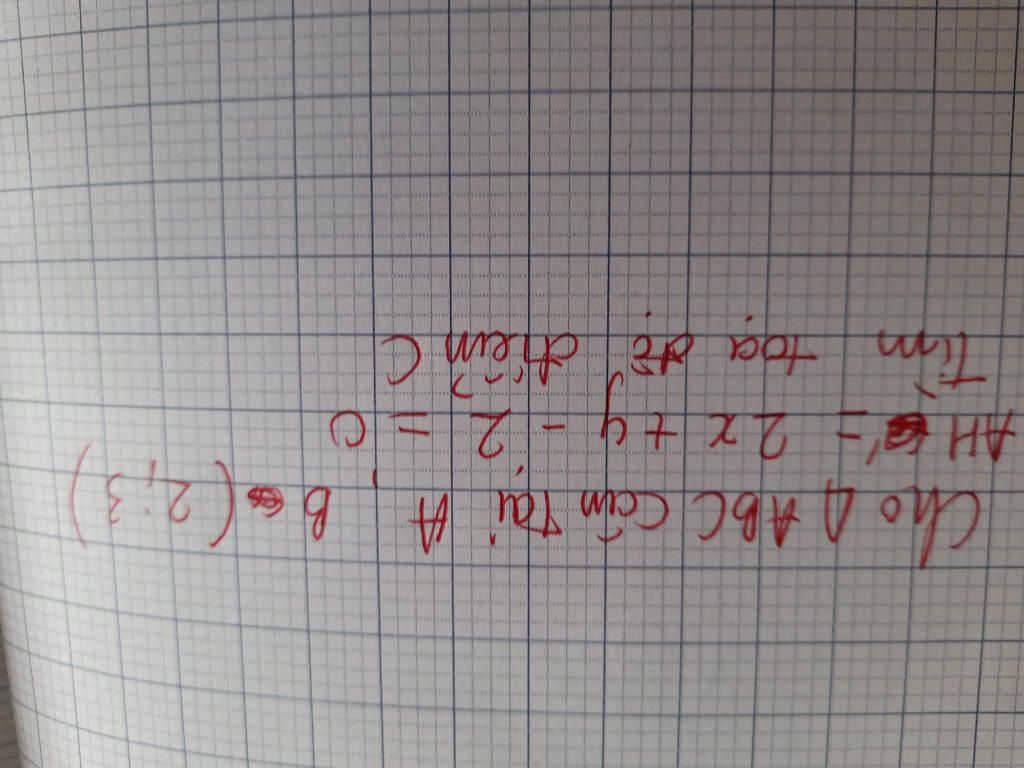 Cho Δ ABC cân tại A, B (2;3)
AH = 2x + y - 2 = 0
tìm toạ độ điểm C